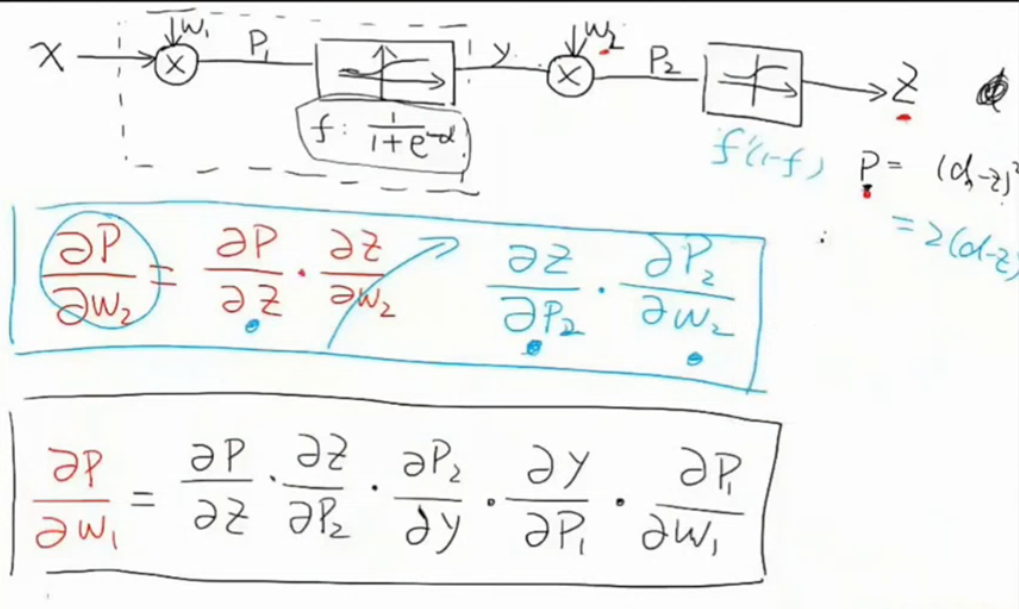 W₁
W₂
X × P₁ y × P₂ Z
f: 1/(1+e^-α)
f(1-f)
P = (d-z)²
= 2(d-z)
∂P/∂W₂ = ∂P/∂Z · ∂Z/∂W₂ ∂Z/∂P₂ · ∂P₂/∂W₂
∂P/∂W₁ = ∂P/∂Z · ∂Z/∂P₂ · ∂P₂/∂y · ∂y/∂P₁ · ∂P₁/∂W₁